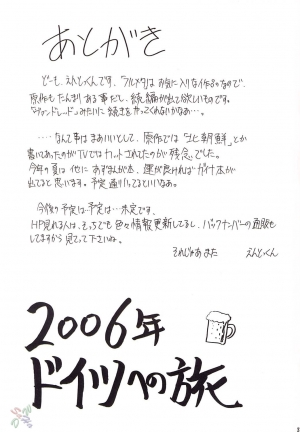 あとがき
どーも、えんとっくんです。フルメタはお気に入りな作品なので、
原作もたんまりある事だし、続編が出て欲しいものです。
みたいに続きを作ってくれないかなあ…。
……なんて事はまあいいとして、原作では「北朝鮮」とか
書いてあったのがTVではカットされてたのが残念でした。
今年の夏は他にあずまんが本、運が良ければガイナ本が
出てると思います。予定通りいってるといいなあ。
今後の予定は…予定は…未定です。
HP見れる人は、そっちでも色々情報更新してるし、バックナンバーの通販も
してますから見て下さいね。
それじゃあまた えんとっくん
2006年
ドイツへの旅